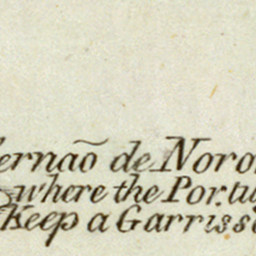 ernaõ de Noro
where the Portu
Keep a Garriss